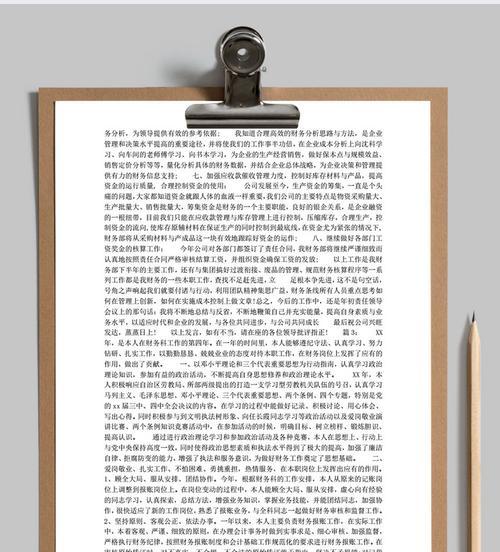 务分析，为领导提供有效的参考依据;　　我知道合理高效的财务分析思路与方法，是企业
管理和决策水平提高的重要途径，并将使我们的工作事半功倍，在企业成本分析上向沈科学
习、向车间的老师傅学习、向书本学习，为企业的生产经营销售，做好保本点与规模效益、
销售定价分析等等，量化分析具体的财务数据，并结合企业总体战略，为企业决策和管理提
供有力的财务信息支持;　　七、加强应收款催收管力度，控制好库存材料与产品，提高
资金的运行质量，合理控制资金的使用;　　公司发展至今，生产资金的筹集，一直是个头
痛的问题,大家都知道资金就跟人体的血液一样重要，我们公司的主要特点是物资采购量大、
生产批量大、销售批量大，筹集资金是财务的一个主要职能，良好的银企关系，是企业融资
的一根纽带，目前我们只能在应收款管理与库存管理上进行控制，压缩库存，合理生产，控
制资金的流向,使库存原辅材料在保证生产的同时控制到最底线,在资金尤为紧张的情况下，
财务部将从采购材料与产成品这一块有效地跟踪资金的运作;　　八、继续做好各部门工
资奖金的核算工作;　　今年公司对各部门都签订了责任合同，我财务部将继续严谨细致而
认真地按照责任合同严格审核结算工资，并组织资金确保工资的发放;　　以上工作是我财
务部下半年的主要工作，还有与集团搞好过渡衔接、废品的管理、规范财务核算程序等一系
列工作都是我财务的一些本职工作，查找不足赶先进，立　　足根本争先进，这不是句空话，
号角之声响起我们就要付诸与行动，利用团队精神集思广益，财务条线所有人员重点思考如
何在管理上创新、如何在实施成本控制上做文章!总之，今后的工作中，还是年初责任领导
会议上的那句话：我将不断地总结与反省，不断地鞭策自己并充实能量，提高自身素质与业
务水平，以适应时代和企业的发展，与各位共同进步，与公司共同成长　　最后祝公司兴旺
发达，蒸蒸日上!　　以上发言，如有不当，请在座的各位领导批评指正!　　篇3：　XX
年，是本人在财务科工作的第四年。在一年的时间里，本人能够遵纪守法、认真学习、努力
钻研、扎实工作，以勤勤恳恳、兢兢业业的态度对待本职工作，在财务岗位上发挥了应有的
作用，做出了贡献。　　一、以邓小平理论和三个代表重要思想为行动指南，认真学习政治
理论知识，参加有益的政治活动，不断提高自身思想修养和政治理论水平。　　XX年，本
人积极响应自治区劳教局、所部两级提出的打造一支学习型劳教机关队伍的号召，认真学习
马列主义、毛泽东思想、邓小平理论、三个代表重要思想、两个条例、四个专题，特别是党
的xx届三中、四中全会议议的内容。在学习的过程中能做好记录，积极讨论，用心体会、
写出心得。同时积极参与到文明执法树形象、向任长霞同志学习等政治活动以及爱岗敬业演
讲比赛、两个条例知识竞赛活动中，在参加活动的时候，明确目标、树立榜样、锻炼胆识、
提高认识。　　通过进行政治理论学习和参加政治活动及各种竞赛，本人在思想上、行动上
与党中央保持高度一致，同时使得政治思想素质和执法水平得到了极大的提高，加强了廉洁
自律、拒腐防变的能力，增强了执法和服务意识，为做好财务工作奠定了思想基础。　　二、
爱岗敬业、扎实工作、不怕困难、勇挑重担，热情服务，在本职岗位上发挥出应有的作用。
1、顾全大局、服从安排、团结协作。今年，根据财务科的工作安排，本人从原来的记账岗
位上调整到报账岗位上。在岗位变动的过程中，本人能顾全大局、服从安排，虚心向有经验
的同志学习，认真探索，总结方法，增强业务知识，掌握业务技能，并能团结同志，加强协
作，很快适应了新的工作岗位，熟悉了报账业务，与全科同志一起做好财务审核和监督工作。
2、坚持原则、客观公正、依法办事。一年以来，本人主要负责财务报账工作，在实际工作
中，本着客观、严谨、细致的原则，在办理会计事务时做到实事求是、细心审核、加强监督，
严格执行财务纪律，按照财务报账制度和会计基础工作规范化的要求进行财务报账工作。在